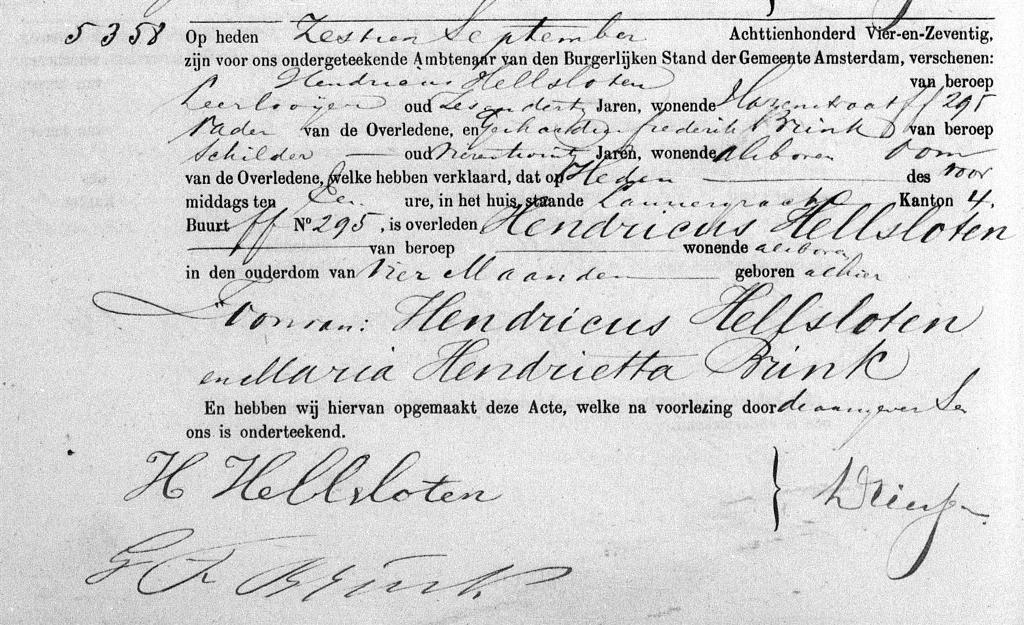 5358 Op heden Zestien September Achttienhonderd Vier-en-Zeventig,
zijn voor ons ondergeteekende Ambtenaar van den Burgerlijken Stand der Gemeente Amsterdam, verschenen:
Hendricus Hellsloten van beroep
Leerlooijer oud Zesendertig Jaren, wonende Hazenstraat ff 295
Vader van de Overledene, en Gerhardus Frederik Brink van beroep
Schilder oud Jaren, wonende alhier oom
van de Overledene, welke hebben verklaard, dat op Heden des voor
middags ten ure, in het huis, staande Lauriergracht Kanton 4,
Buurt ff No 295, is overleden Hendricus Hellsloten
van beroep wonende
in den ouderdom van Vier Maanden geboren alhier
Zoon van: Hendricus Hellsloten
en Maria Hendrietta Brink
En hebben wij hiervan opgemaakt deze Acte, welke na voorlezing door de aangevers en
ons is onderteekend.
H Hellsloten
G F Brink